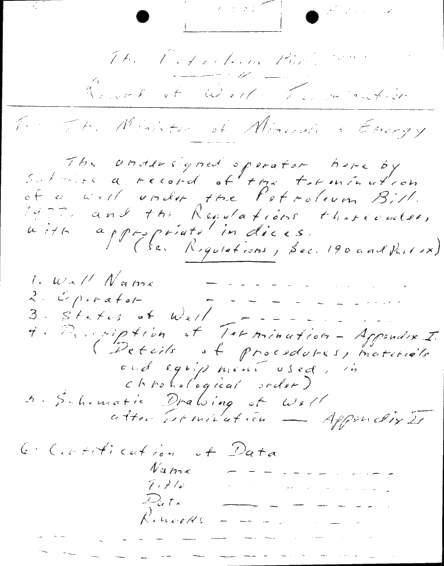 The Petroleum
Record of Well Termination
To: The Minister of Minerals & Energy
The undersigned operator here by
submits a record of the termination
of a well under the Petroleum Bill.
1977, and the Regulations thereunder,
with appropriate indices.
(Sec. Regulations, Sec. 190 and Part IX)
1. Well Name
2. Operator
3. Status of Well
4. Description of Termination - Appendix I.
(Details of procedures, materials
and equipment used, in
chronological order)
5. Schematic Drawing of Well
after Termination — Appendix II
6. Certification of Data
Name
Title
Date
Remarks